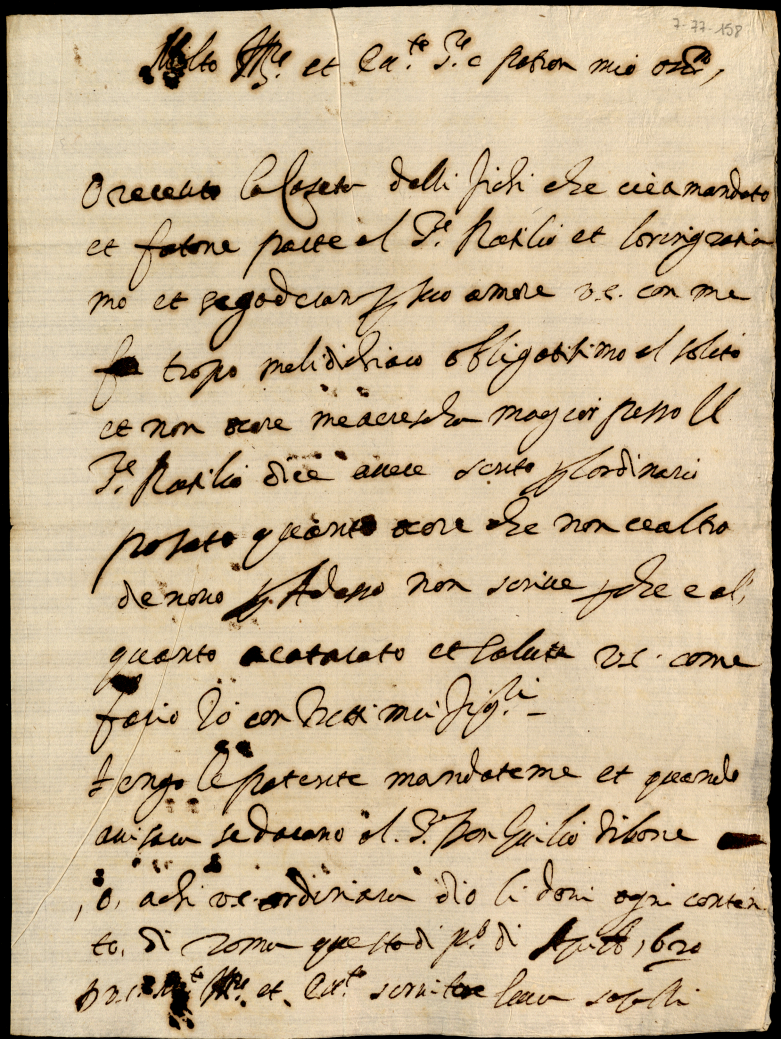 7-77-158
Molto Ill.re et Ecc.te S.re e patron mio oss.mo,
O receuto la Caseta delli fichi che ci ea mandato
et fatone parte al S.re Rutilio et lo ringratia
mo et se goderan p suo amore v.s. con me
fa tropo me li dichiaro obligatisimo al solito
et non ocore
S.re Rutilio dice avere scrito p l'ordinario
pasato quanto ocore che non ce altro
de novo p Adesso non scrive p che e al
quanto acatarato et saluta V.S. come
facio Io con tutti mei figli
tengo le patente mandateme et quando
avisara se darano al S.r Don Giulio
o, a chi v.s. ordinara dio li doni ogni conten
to, di roma questo di p.o di 1620
D V.S. Ill.re et Ecc.te servitore